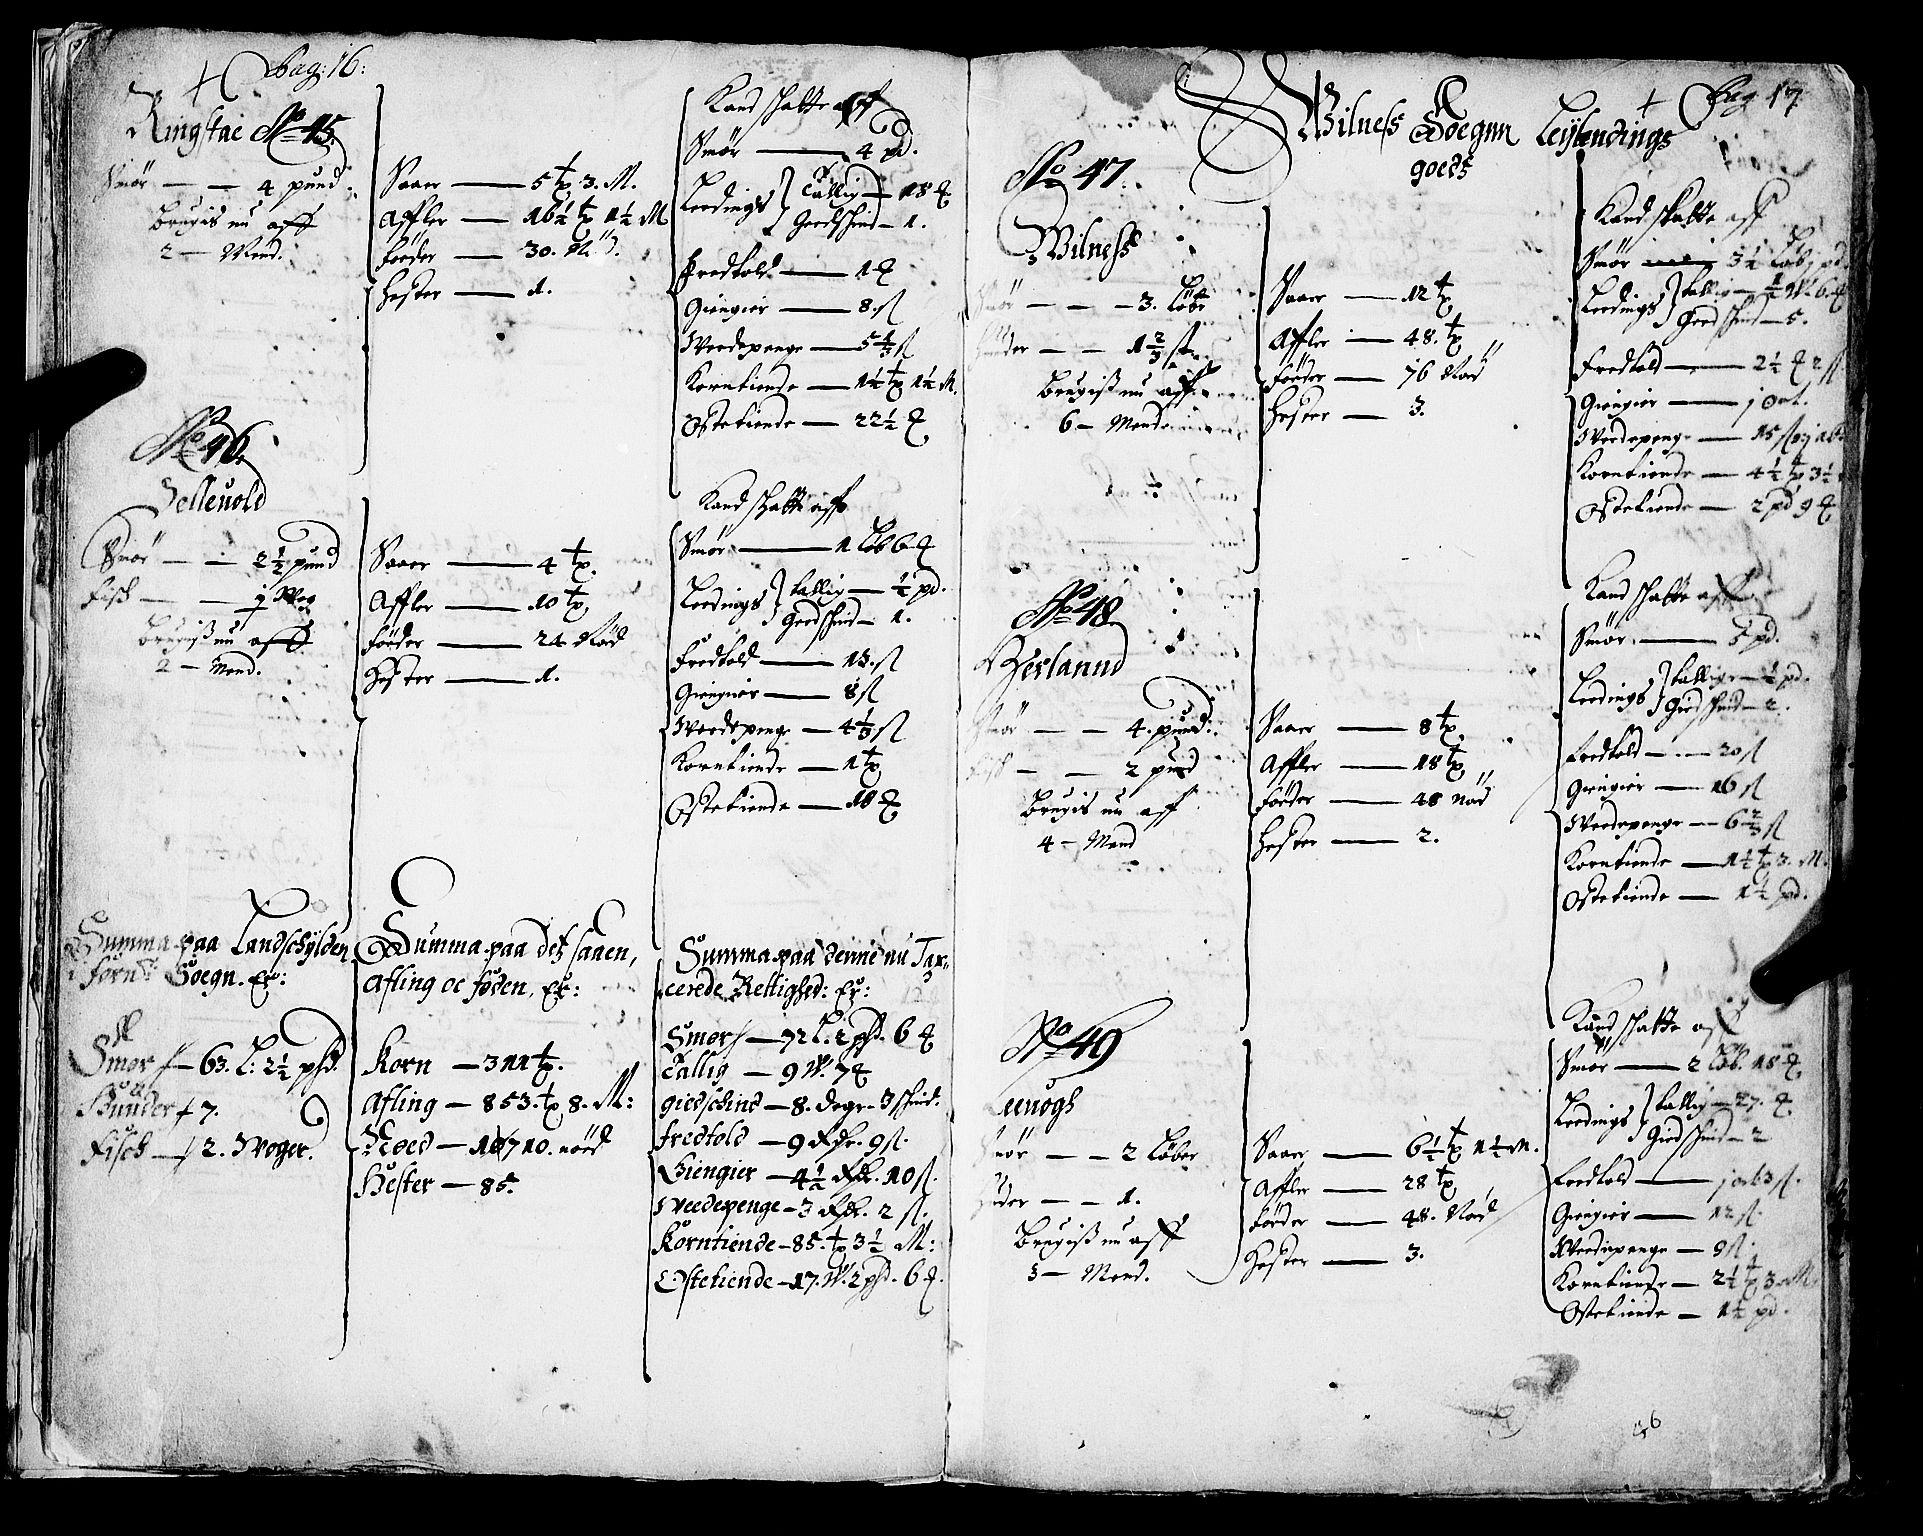 pag: 16:
Ringstac No 45.
Smör — — 4 pund
Brugis nu aff
2 — Mend.
Saaer — 5 tp. 3. M.
Affler — 16½ tp 1½ M
Föeder — 30. Nöd.
Hester — 1.
Kand schatte aff
Smör — 4 pd.
Leedings } Tallig — 18 ℔
Geedschind — 1.
Fredtold — 1 ℔
Giengier — 8 ß
Weedepenge — 5⅓ ß
Korntiende — 1½ tp 1½ M.
Ostetiende — 22½ ℔
No 46.
Hellevold
Smör — — 2½ pund
Fisk — — j Wog
Brugiß nu aff
2 — Mend.
Saaer — 4 tp.
Affler — 10 tp.
Föeder — 24 Nöd
Hester — 1.
Kand schatte aff
Smör — 1 Löb 6 ℔
Leedings } Tallig — ½ pd.
Geedschind — 1.
Fredtold — 15. ß
Giengier — 8 ß
Weedepenge — 4⅓ ß
Korntiende — 1 tp
Ostetiende — 18 ℔
Summa paa Landschÿlden
i forne Soegn. Er:
Smør — 63. L: 2½ pßd.
Huuder — 7.
Fisch — 2. Woger.
Summa paa det saaen,
Afling oc føden, Er:
Korn — 311 tp.
Afling — 853. tp 8. M:
Nøed — 1710. nøed
Hester — 85.
Summa paa denne nu Tax-
cerede Rettighed: Er:
Smør — 72 L. 2 pßd. 6 ℔
Tallig — 9 W. 7 ℔
giedschind — 8. degr. 3 schind.
fredtold — 9 Rdr. 9 ß.
Giengier — 4½ Rdr. 10 ß.
Weedepenge — 3 Rdr. 2 ß.
Korntiende — 85. tp 3½ M:
Ostetiende — 17. W. 2 pßd. 6 ℔.
pag 17
Wilness Soegnn Leÿlendings
goeds
No 47.
Wilness
Smör — — 3. Löbe
Huuder — — 1⅔ st.
Brugiß nu aff
6 — Mend
Saaer — 12 tp
Affler — 48. tp
Föeder — 76 Nöd
Hester — 3.
Kand schatte aff
Smör — 3½ Löb j pd.
Leedings } Tallig — ½ W. 6 ℔
Geedschind — 5.
Fredtold — 2½ ℔ 2 ß
Giengier — j ort.
Weedepenge — 15 ß
Korntiende — 4½ tp 3½
Ostetiende — 2 pd 9 ℔
No 48.
Herlannd
Smör — — 4. pund:
Fisk — — 2 pund
Brugis nu aff
4 — Mend
Saaer — 8 tp.
Affler — 18 tp.
Föeder — 48 Nöd
Hester — 2.
Kand schatte aff
Smör — 5 pd.
Leedings } Tallig — ½ pd.
Giedschind — 2.
Fredtold — 30 ß
Giengier — 16 ß
Weedepenge — 6⅔ ß
Korntiende — 1½ tp 3. M.
Ostetiende — 1½ pd.
No 49
Leuogh
Smör — — 2 Löber
Huder — — 1.
Brugiß nu aff
3 — Mend.
Saaer — 6½ tp 1½ M.
Affler — 28 tp.
Föeder — 48. Nöd
Hester — 3.
Kand schatte aff
Smör — 2 Löb. 18 ℔
Leedings } Tallig — 27. ℔
Giedschind — 2
Fredtold — j ort 3 ß.
Giengier — 12 ß.
Weedepenge — 9 ß.
Korntiende — 2½ tp 3. M.
Ostetiende — 1½ pd.